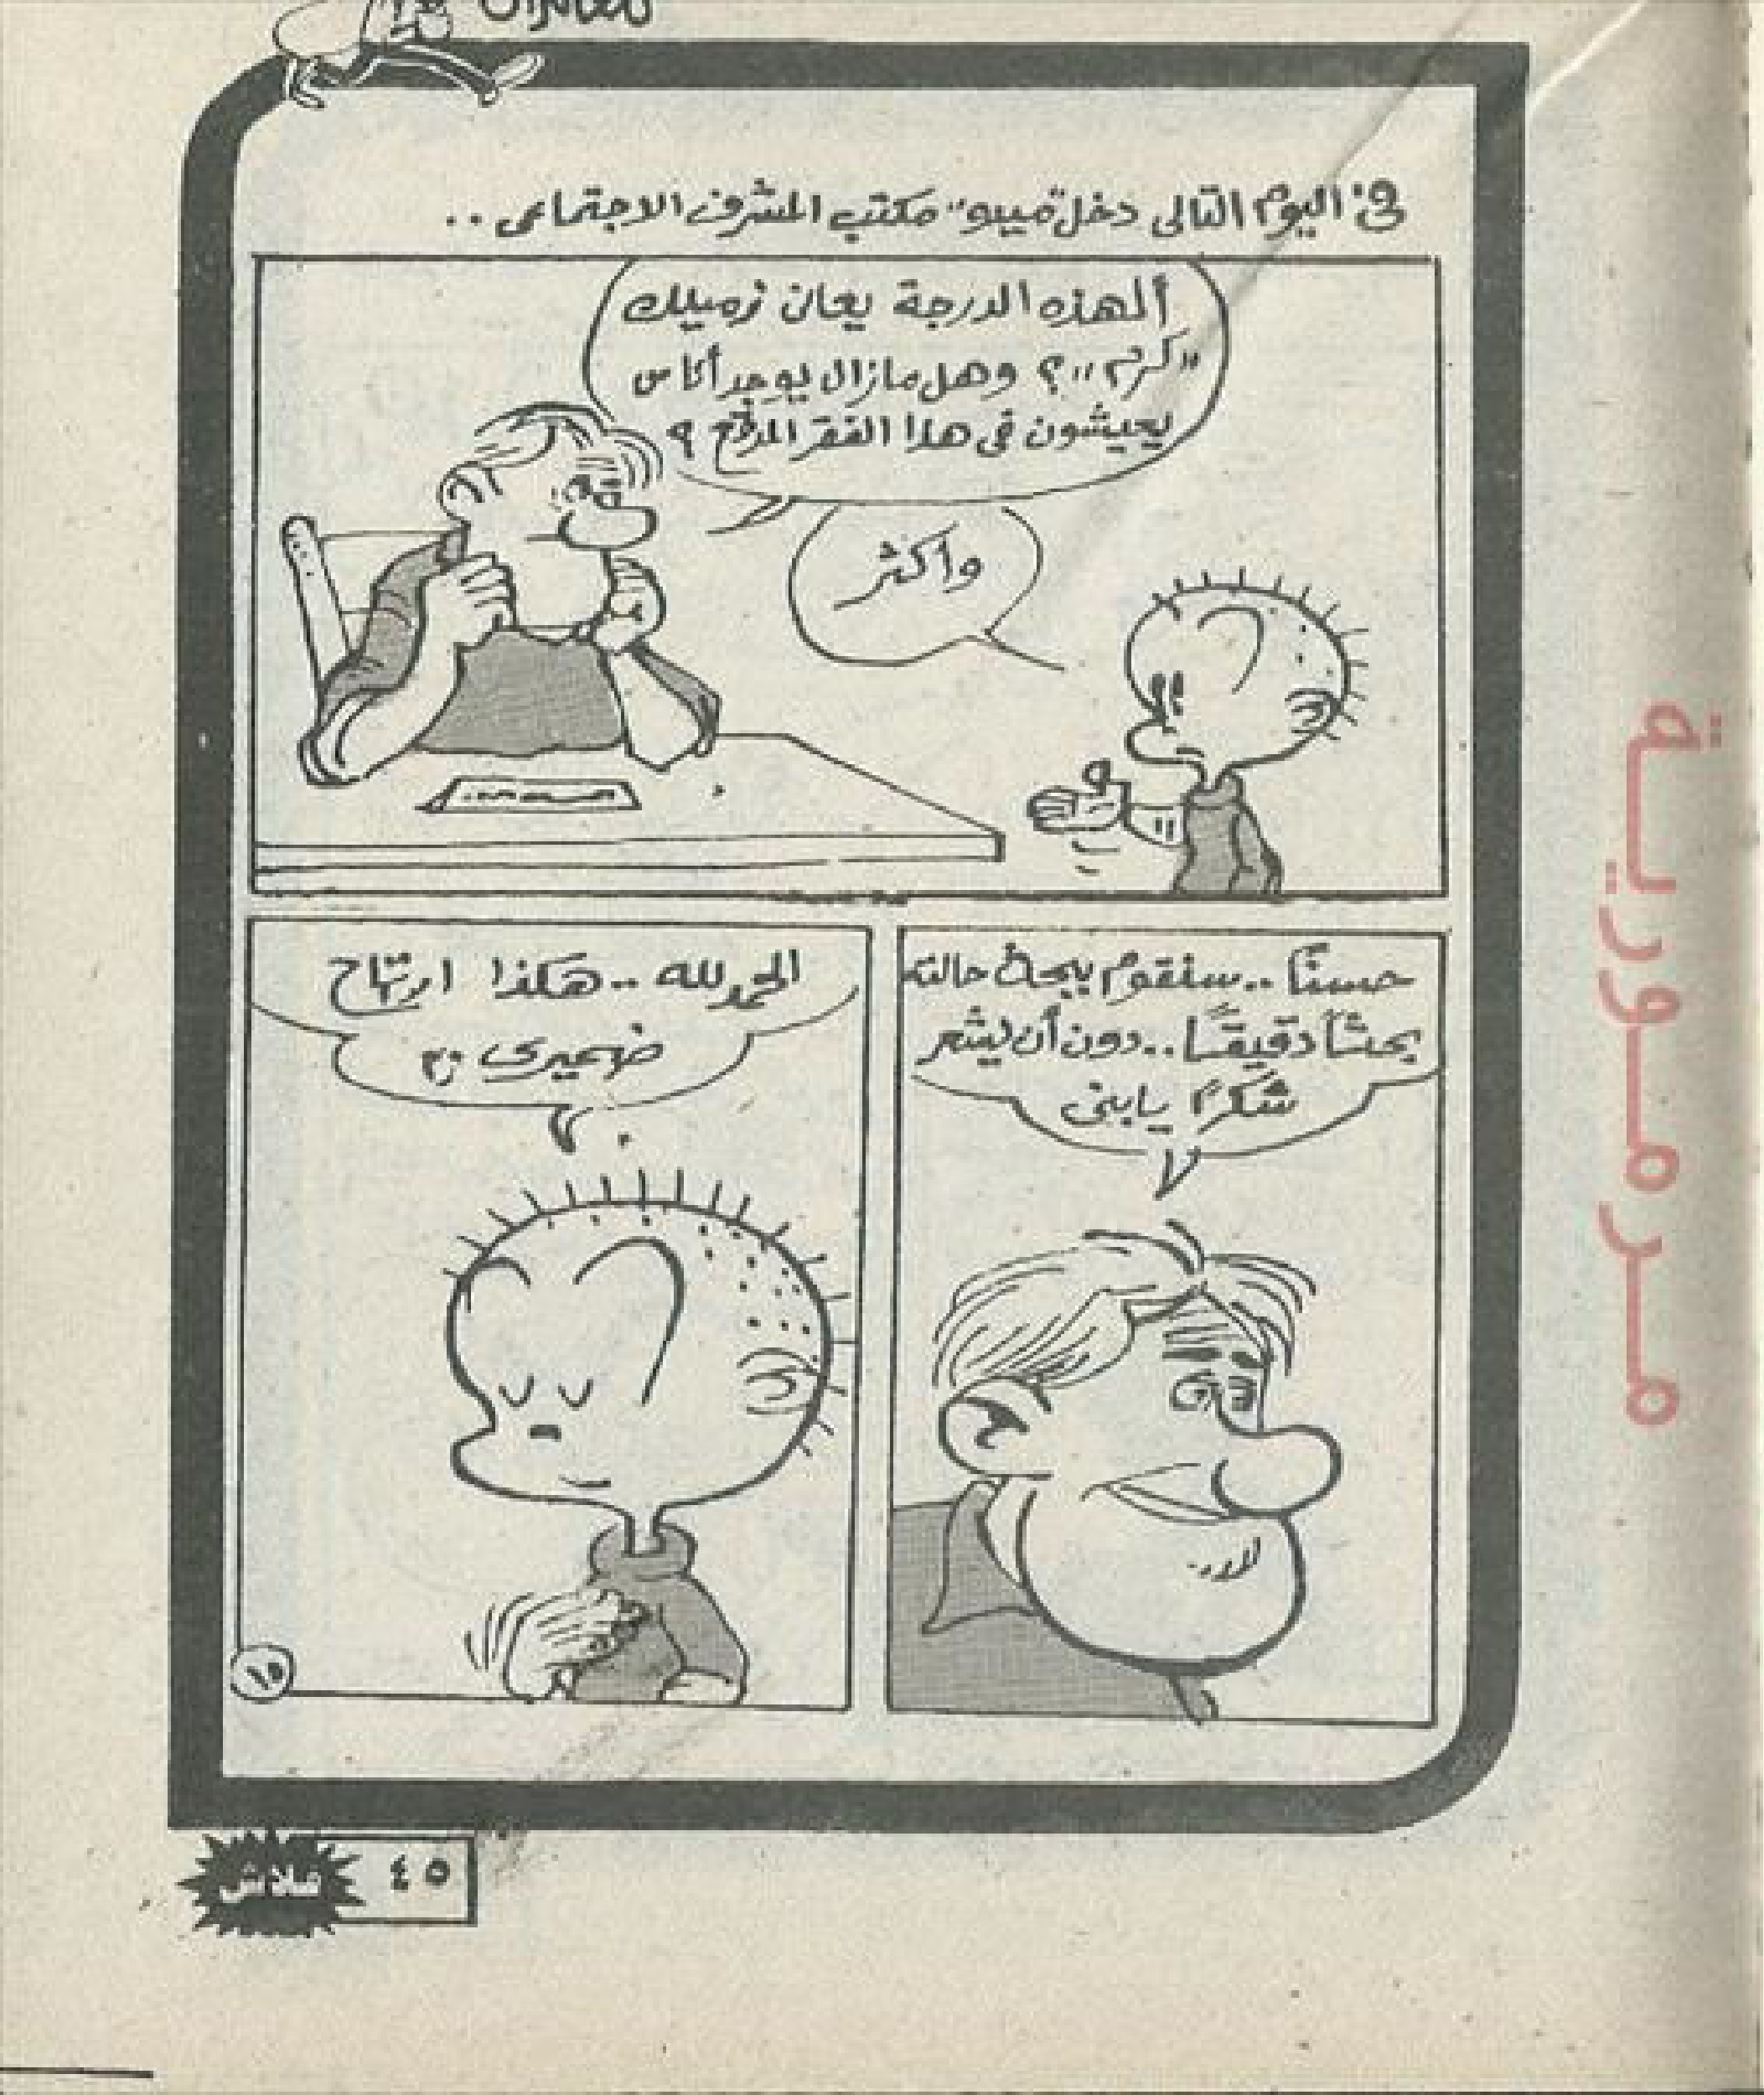 فى اليوم التالى دخل "ميبو" مكتب المشرف الاجتماعى ..
ألهذه الدرجة يعانى زميلك
"كرم"؟ وهل مازال يوجد أناس
يعيشون فى هذا الفقر المدقع ؟
وأكثر
حسنًا .. سنقوم ببحث حالته
بحثًا دقيقًا .. دون أن يشعر
شكرًا يابنى
الحمد لله .. هكذا ارتاح
ضميرى
١٥
٤٥
فلاش
مرمورية